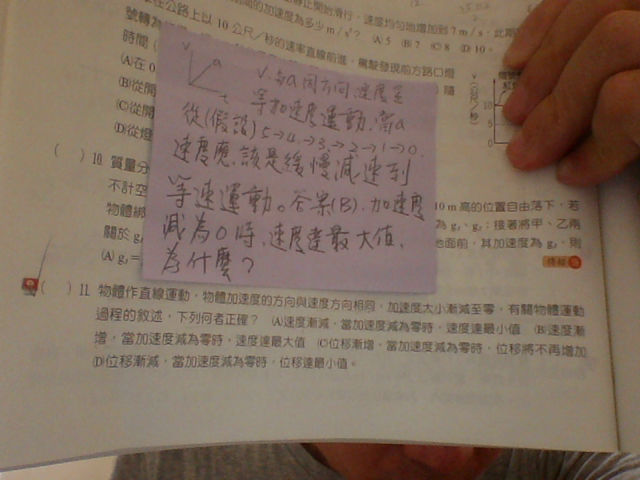 靜止開始滑行，速度均勻地增加到7 m/s，此
時間的加速度為多少m/s²？ (A) 5 (B) 7 (C) 8 (D) 10。
在公路上以10公尺／秒的速率直線前進，駕駛發現前方路口燈
號轉為
時間
(A)在0
(B)從開
(C)從開
(D)從燈
v
a
t
V與a同方向,速度是
等加速度運動,當a
從(假設)5→4→3→2→1→0.
速度應該是緩慢減速到
等速運動。答案(B).加速度
減為0時,速度達最大值,
為什麼?
( ) 10. 質量分
10 m高的位置自由落下，若
不計空
物體綁
為g₁、g₂；接著將甲、乙兩
關於g
地面前，其加速度為g₃，則
(A) g₃＝
( ) 11. 物體作直線運動，物體加速度的方向與速度方向相同，加速度大小漸減至零，有關物體運動
過程的敘述，下列何者正確？ (A)速度漸減，當加速度減為零時，速度達最小值 (B)速度漸
增，當加速度減為零時，速度達最大值 (C)位移漸增，當加速度減為零時，位移將不再增加
(D)位移漸減，當加速度減為零時，位移達最小值。